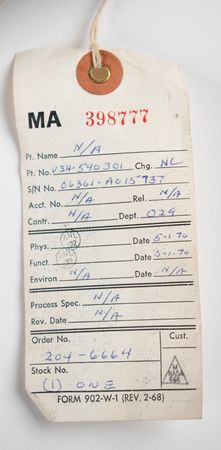 MA 398777
Pt. Name N/A
Pt. No. V34-590301 Chg. NC
S/N No. 06361-A015737
Acct. No. N/A Rel. N/A
Contr. N/A Dept. 029
Phys. Date 5-1-70
Funct. Date 5-1-70
Environ N/A Date N/A
Process Spec. N/A
Rev. Date N/A
Order No. Cust.
204-6664
Stock No.
(1) ONE
FORM 902-W-1 (REV. 2-68)